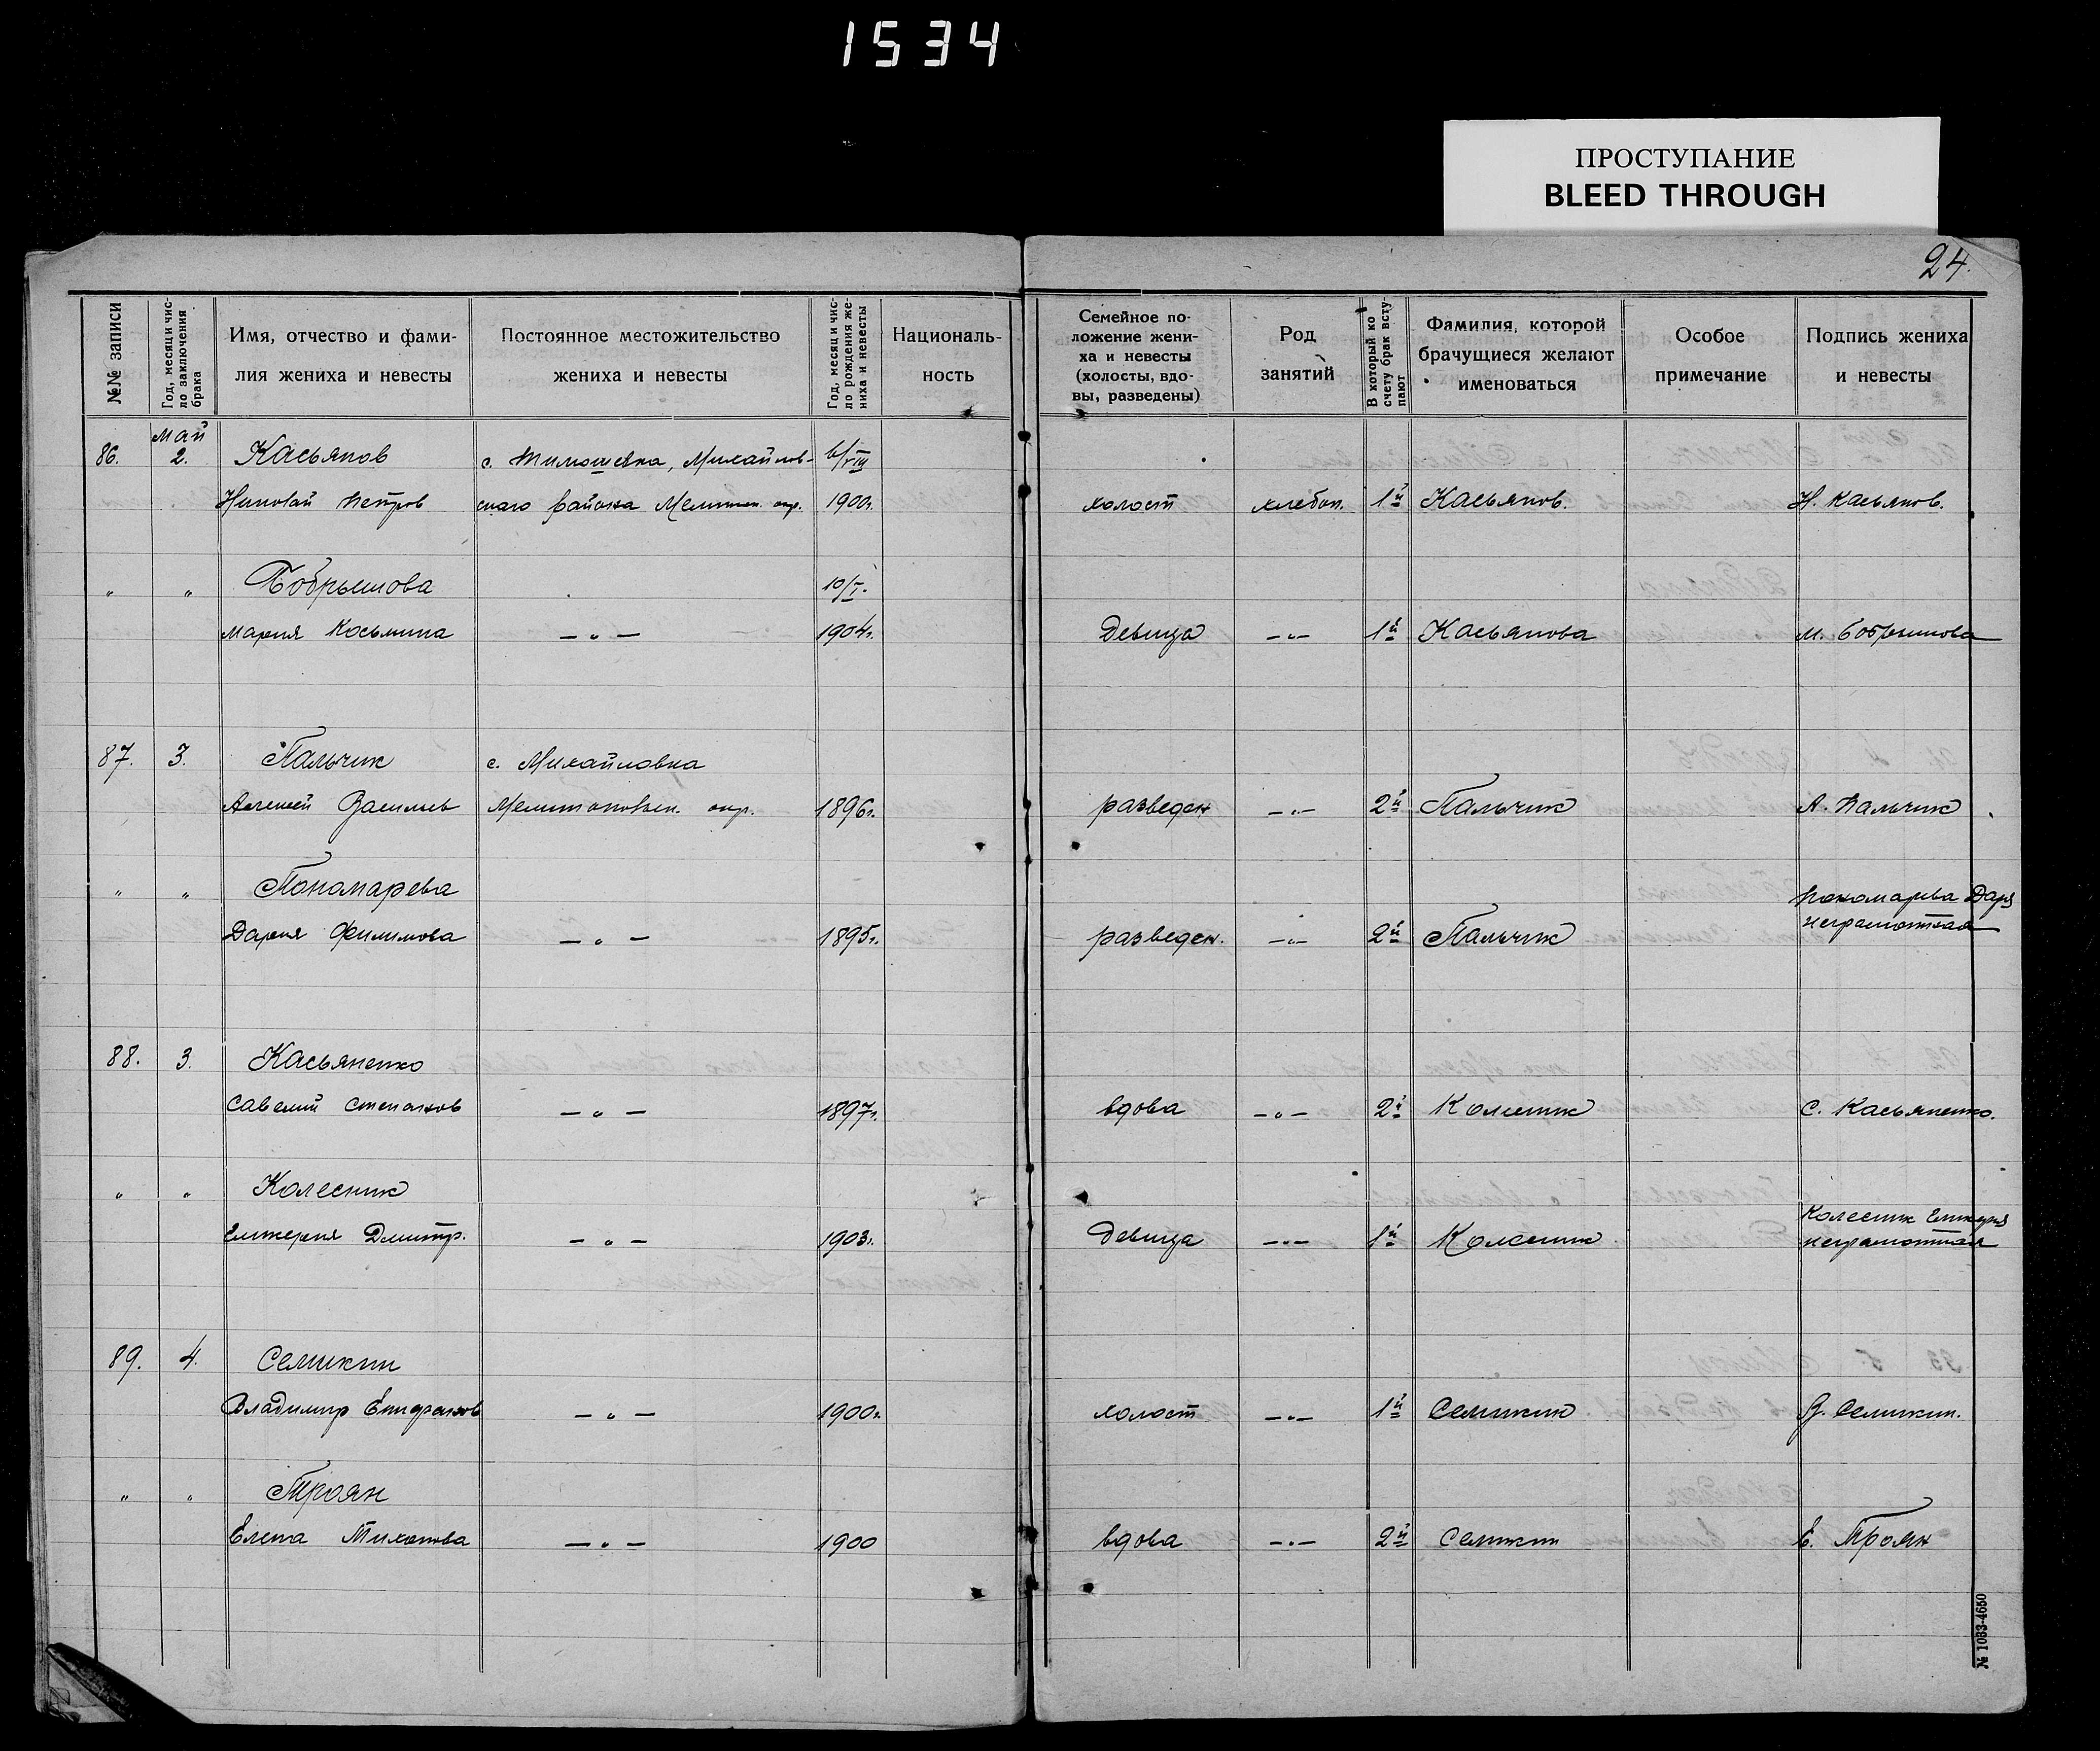 1534
ПРОСТУПАНИЕ
BLEED THROUGH
24.
№№ записи
Год, месяц и чис-
ло заключения
брака
Имя, отчество и фами-
лия жениха и невесты
Постоянное местожительство
жениха и невесты
Год, месяц и чис-
ло рождения же-
ниха и невесты
Националь-
ность
Семейное по-
ложение жени-
ха и невесты
(холосты, вдо-
вы, разведены)
Род
занятий
В который ко
счету брак всту-
пают
Фамилия, которой
брачущиеся желают
именоваться
Особое
примечание
Подпись жениха
и невесты
май
86. 2. Касьянов с. Тимошевка, Михайлов-
Николай Петров скаго района Мелитоп. окр. 1900г. холост хлебоп. 1й Касьянов. Н. Касьянов.
" " Бобрышова 10/I.
Мария Косьмина — " — 1904г. девица — " — 1й Касьянова М. Бобрышова
87. 3. Пальчик с. Михайловка
Алексей Васильев Мелитопольск. окр. 1896г. разведен — " — 2й Пальчик А. Пальчик
" " Пономарева Пономарева Даря
Дария Филимова — " — 1895г. разведен. — " — 2й Пальчик неграмотная
88. 3. Касьяненко
Савелий Степанов — " — 1897г. вдова — " — 2й Колесник С. Касьяненко.
" " Колесник Колесник
Дмитр. — " — 1903г. девица — " — 1й Колесник неграмотная
89. 4. Семикин
Владимир — " — 1900г. холост — " — 1й Семикин В. Семикин.
" " Троян
Елена Тихонова — " — 1900 вдова — " — 2й Семикин Е. Троян
№ 1033-4650